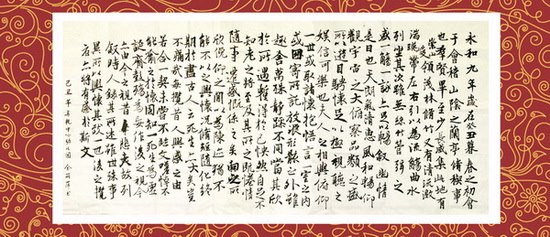 永和九年歲在癸丑暮春之初會
于會稽山陰之蘭亭脩稧事
也群賢畢至少長咸集此地有
崇山峻領茂林脩竹又有清流激
湍暎帶左右引以為流觴曲水
列坐其次雖無絲竹管弦之
盛一觴一詠亦足以暢敘幽情
是日也天朗氣清惠風和暢仰
觀宇宙之大俯察品類之盛
所以遊目騁懷足以極視聽之
娛信可樂也夫人之相與俯仰
一世或取諸懷抱悟言一室之內
或因寄所託放浪形骸之外雖
趣舍萬殊靜躁不同當其欣
於所遇暫得於己快然自足不
知老之將至及其所之既惓情
隨事遷感慨係之矣向之所
欣俛仰之間以為陳迹猶不
能不以之興懷況脩短隨化終
期於盡古人云死生亦大矣豈
不痛哉每攬昔人興感之由
若合一契未嘗不臨文嗟悼不
能喻之於懷固知一死生為虛
誕齊彭殤為妄作後之視今
亦由今之視昔悲夫故列
敘時人錄其所述雖世殊事
異所以興懷其致一也後之攬
者亦將有感於斯文
己丑年